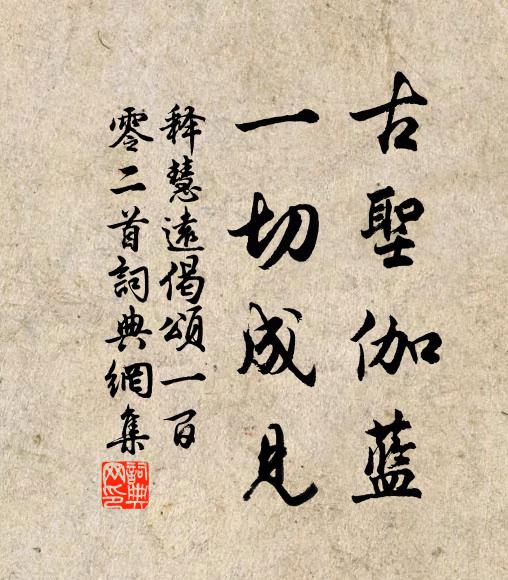 古聖伽藍
一切成見
释慧遠偈頌一百
零二首詞典網集
詞典網印